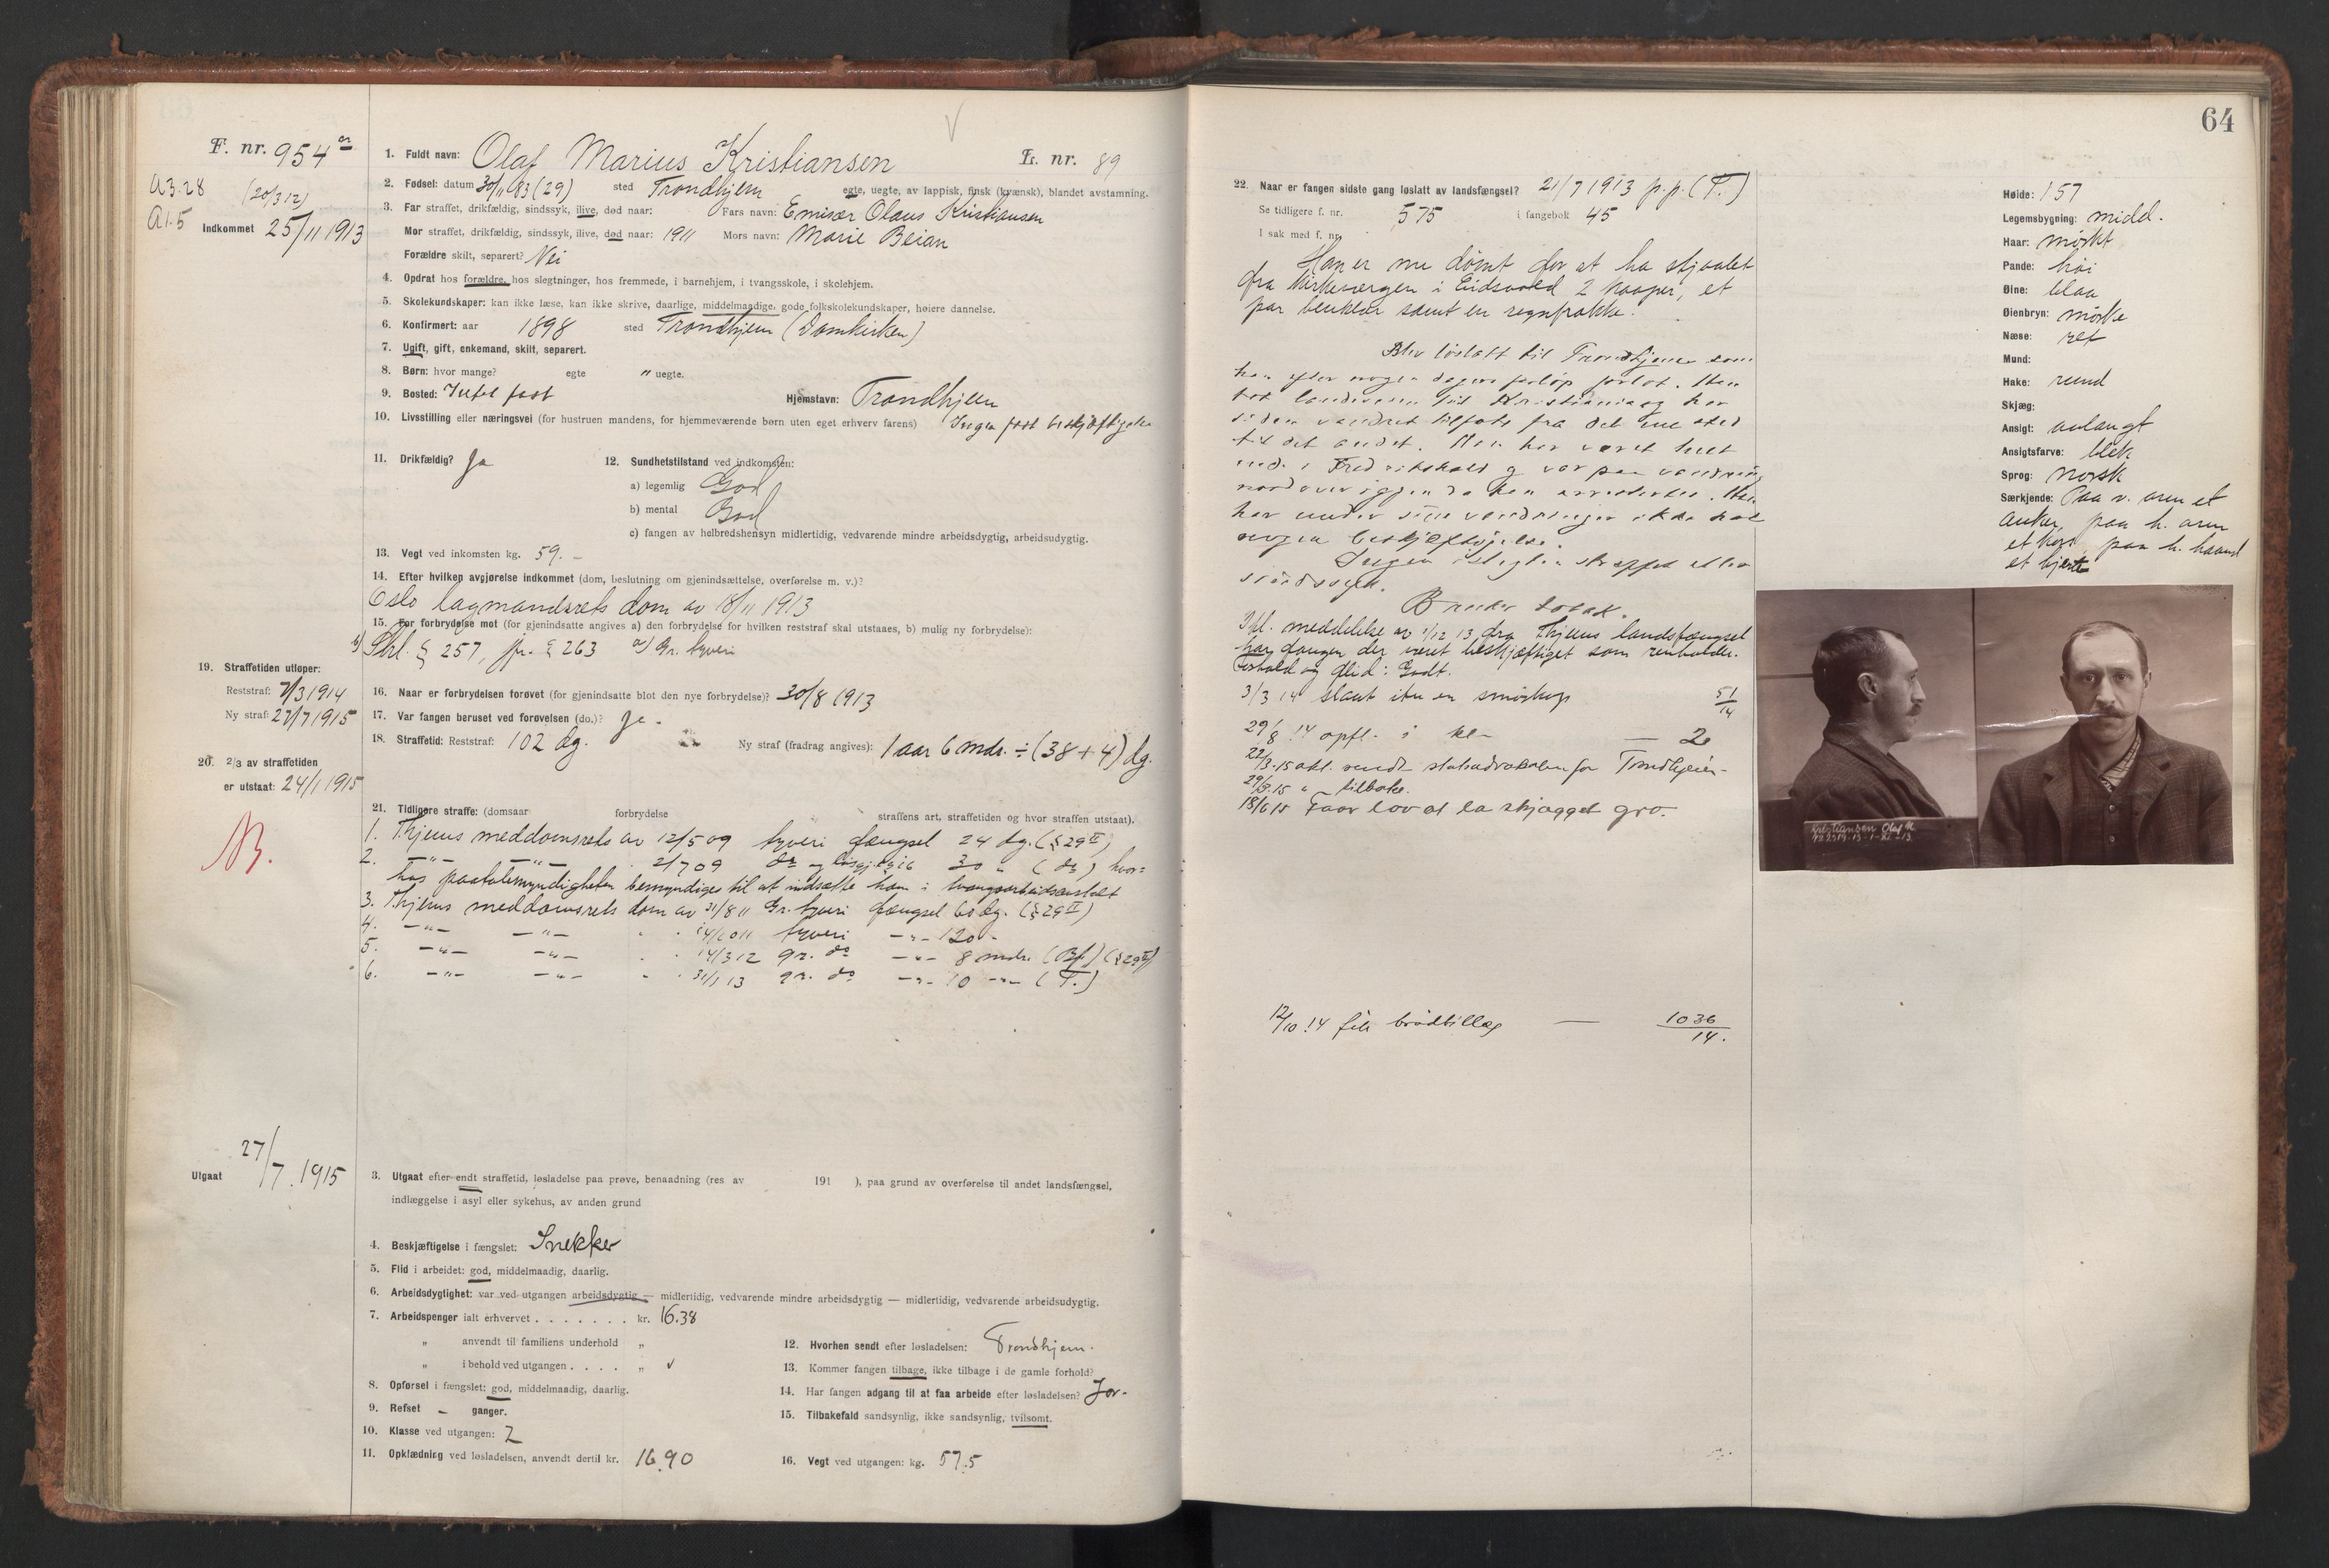 F. nr. 954 a
A3.28 (20/3 12)
A1.5
Indkommet 25/11 1913
1. Fuldt navn: Olaf Marius Kristiansen L. nr. 89
2. Fødsel: datum 30/11 83 (29) sted Trondhjem egte, uegte, av lappisk, finsk (kvænsk), blandet avstamning.
3. Far straffet, drikfældig, sindssyk, ilive, død naar: Fars navn: Emisær Olaus Kristiansen
Mor straffet, drikfældig, sindssyk, ilive, død naar: 1911 Mors navn: Marie Beian
Forældre skilt, separert? Nei
4. Opdrat hos forældre, hos slegtninger, hos fremmede, i barnehjem, i tvangsskole, i skolehjem.
5. Skolekundskaper: kan ikke læse, kan ikke skrive, daarlige, middelmaadige, gode folkskolekundskaper, høiere dannelse.
6. Konfirmert: aar 1898 sted Trondhjem (Domkirken)
7. Ugift, gift, enkemand, skilt, separert.
8. Børn: hvor mange? egte " uegte.
9. Bosted: Intet fast Hjemstavn: Trondhjem
10. Livsstilling eller næringsvei (for hustruen mandens, for hjemmeværende børn uten eget erhverv farens) Ingen fast beskjæftigelse
11. Drikfældig? Ja 12. Sundhetstilstand ved indkomsten:
a) legemlig God
b) mental God
c) fangen av helbredshensyn midlertidig, vedvarende mindre arbeidsdygtig, arbeidsudygtig.
13. Vegt ved inkomsten kg. 59. -
14. Efter hvilken avgjørelse indkommet (dom, beslutning om gjenindsættelse, overførelse m. v.)?
Oslo lagmandsrets dom av 18/11 1913
15. For forbrydelse mot (for gjenindsatte angives a) den forbrydelse for hvilken reststraf skal utstaaes, b) mulig ny forbrydelse):
b) Strl. § 257, jfr. § 263 a) Gr. tyveri
16. Naar er forbrydelsen forøvet (for gjenindsatte blot den nye forbrydelse)? 30/8 1913
17. Var fangen beruset ved forøvelsen (do.)? Ja.
18. Straffetid: Reststraf: 102 dg. Ny straf (fradrag angives): 1 aar 6 mdr. ÷ (38 + 4) dg.
19. Straffetiden utløper:
Reststraf: 7/3 1914
Ny straf: 27/7 1915
20. 2/3 av straffetiden
er utstaat: 24/1 1915
21. Tidligere straffe: (domsaar forbrydelse straffens art, straffetiden og hvor straffen utstaat).
1. Thjems meddomsrets av 12/5 09 tyveri fængsel 24 dg. (§ 29 II)
2. -"- -"- 2/7 09 do og løsgjængeri 30 " (do) hvor=
hos paatalemyndigheten bemyndiges til at indsætte ham i tvangsarbeidsanstalt
3. Thjems meddomsrets dom av 31/8 11 Gr. tyveri fængsel 60 dg. (§ 29 II)
4. -"- -"- 14/10 11 tyveri -"- 120 -
5. -"- -"- 14/3 12 gr. do -"- 8 mdr. (Bf.) (§ 29 II)
6. -"- -"- 31/1 13 gr. do -"- 10 -"- (T.)
Utgaat 27/7. 1915
3. Utgaat efter endt straffetid, løsladelse paa prøve, benaadning (res av 191 ), paa grund av overførelse til andet landsfængsel,
indlæggelse i asyl eller sykehus, av anden grund
4. Beskjæftigelse i fængslet: Snekker
5. Flid i arbeidet: god, middelmaadig, daarlig.
6. Arbeidsdygtighet: var ved utgangen arbeidsdygtig — midlertidig, vedvarende mindre arbeidsdygtig — midlertidig, vedvarende arbeidsudygtig.
7. Arbeidspenger ialt erhvervet . . . . . . . kr. 16.38
" anvendt til familiens underhold "
" i behold ved utgangen . . . . "
8. Opførsel i fængslet: god, middelmaadig, daarlig.
9. Refset - ganger.
10. Klasse ved utgangen: 2
11. Opklædning ved løsladelsen, anvendt dertil kr. 16.90
12. Hvorhen sendt efter løsladelsen: Trondhjem.
13. Kommer fangen tilbage, ikke tilbage i de gamle forhold?
14. Har fangen adgang til at faa arbeide efter løsladelsen? Ja.
15. Tilbakefald sandsynlig, ikke sandsynlig, tvilsomt.
16. Vegt ved utgangen: kg. 57.5
64
22. Naar er fangen sidste gang løslatt av landsfængsel? 21/7 1913 p.p. (T.)
Se tidligere f. nr. 575 i fangebok 45
I sak med f. nr.
Han er nu dømt for at ha stjaalet
fra Kirkevergen i Eidsvold 2 kaaper, et
par benklær samt en regnfrakke.
Blev løslatt til Trondhjem som
han efter nogen dagers forløp forlot. Han
tok landeveien til Kristiania og har
siden vandret tilfots fra det ene sted
til det andet. Han har været helt
nede i Fredrikshald og var paa vandring
nordover igjen da han arresteres. Han
har under sine vandringer ikke hat
nogen beskjæftigelse.
Ingen i slegten straffet eller
sindssyk.
Bruker tobak.
Ifl. meddelelse av 1/12 13 fra Thjems landsfængsel
har fangen der været beskjæftiget som renholder.
Forhold og flid: Godt.
3/3 14 slaat itu en smørkop 51/14
29/8 14 opfl. i kl - — 2
22/3.15 akt. sendt statsadvokaten for Trondhjem-
29/3.15 " - tilbake.
18/6 15 Faar lov at la skjægget gro.
12/10 14 fik brødtillæg — 1036/14.
Høide: 157
Legemsbygning: midd.
Haar: mørkt
Pande: høi
Øine: blaa
Øienbryn: mørke
Næse: ret
Mund:
Hake: rund
Skjæg:
Ansigt: avlangt
Ansigtsfarve: blek
Sprog: norsk
Særkjende: Paa v. arm et
anker, paa h. arm
et kors, paa h. haand
et hjerte
Kristiansen Olaf M.